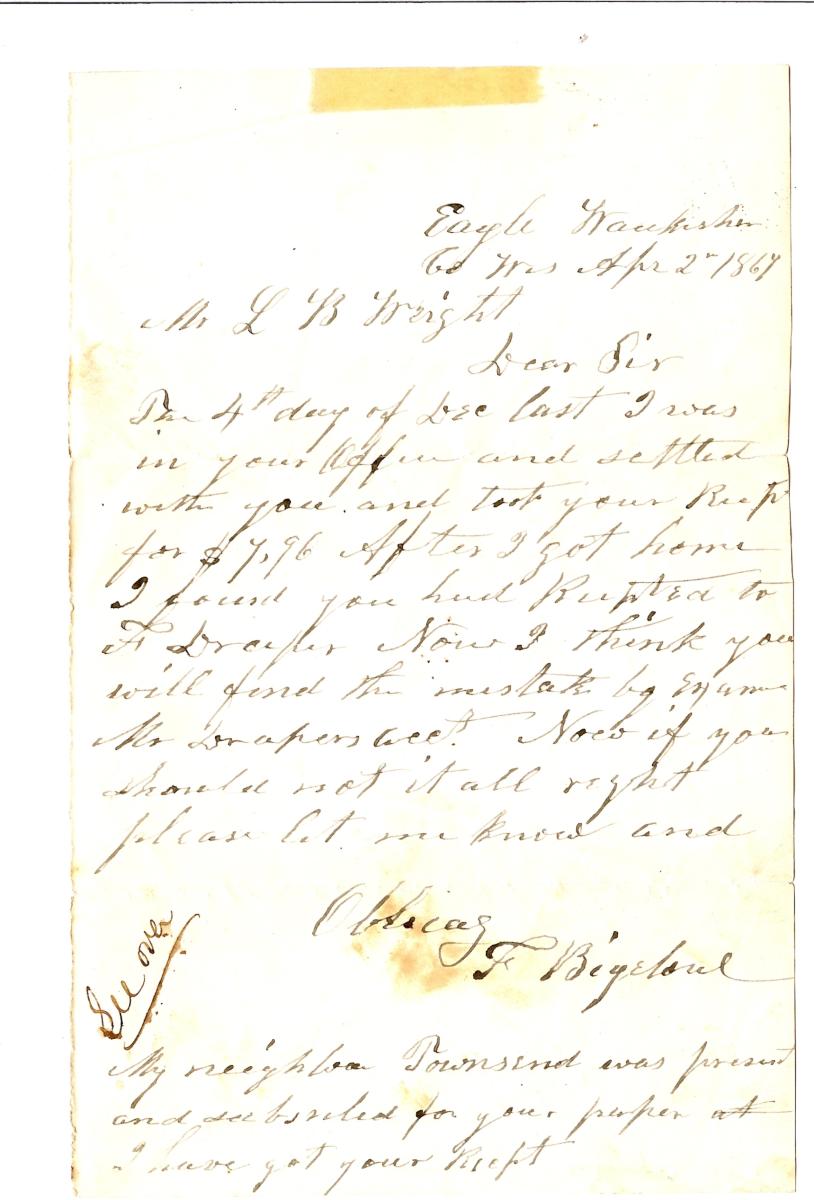 Eagle Waukesher
Co Wis Apr 2n 1867
Mr L B Wright
Dear Sir
The 4th day of Dec last I was
in your Office and settled
with you and took your Recpt
for $7,96 After I got home
I found you had Recpted to
F Draper Now I think you
will find the mistake by Exam
Mr Drapers acct. Now if you
should not it all right
please let me know and
F Bigelow
See over
My neighbor Townsend was present
and subscribed for your paper
I have got your Recpt